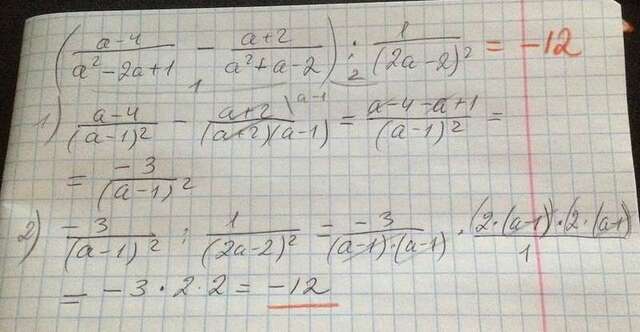 (a-4/a²-2a+1 - a+2/a²+a-2) : 1/(2a-2)² = -12
1 2
1) a-4/(a-1)² - a+2\a-1/(a+2)(a-1) = a-4-a+1/(a-1)² =
= -3/(a-1)²
2) -3/(a-1)² : 1/(2a-2)² = -3/(a-1)·(a-1) · (2·(a-1)·(2·(a-1)/1
= -3·2·2 = -12